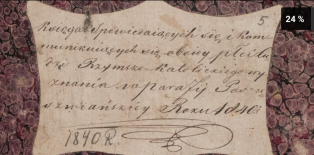 5
Księga Spowiadaiących się i Kom-
munikuiących się obojej płci Ob-
rz: Rzymsko Katolickiego wy-
znania na parafij
Roku 1840
1840 R.
24 %